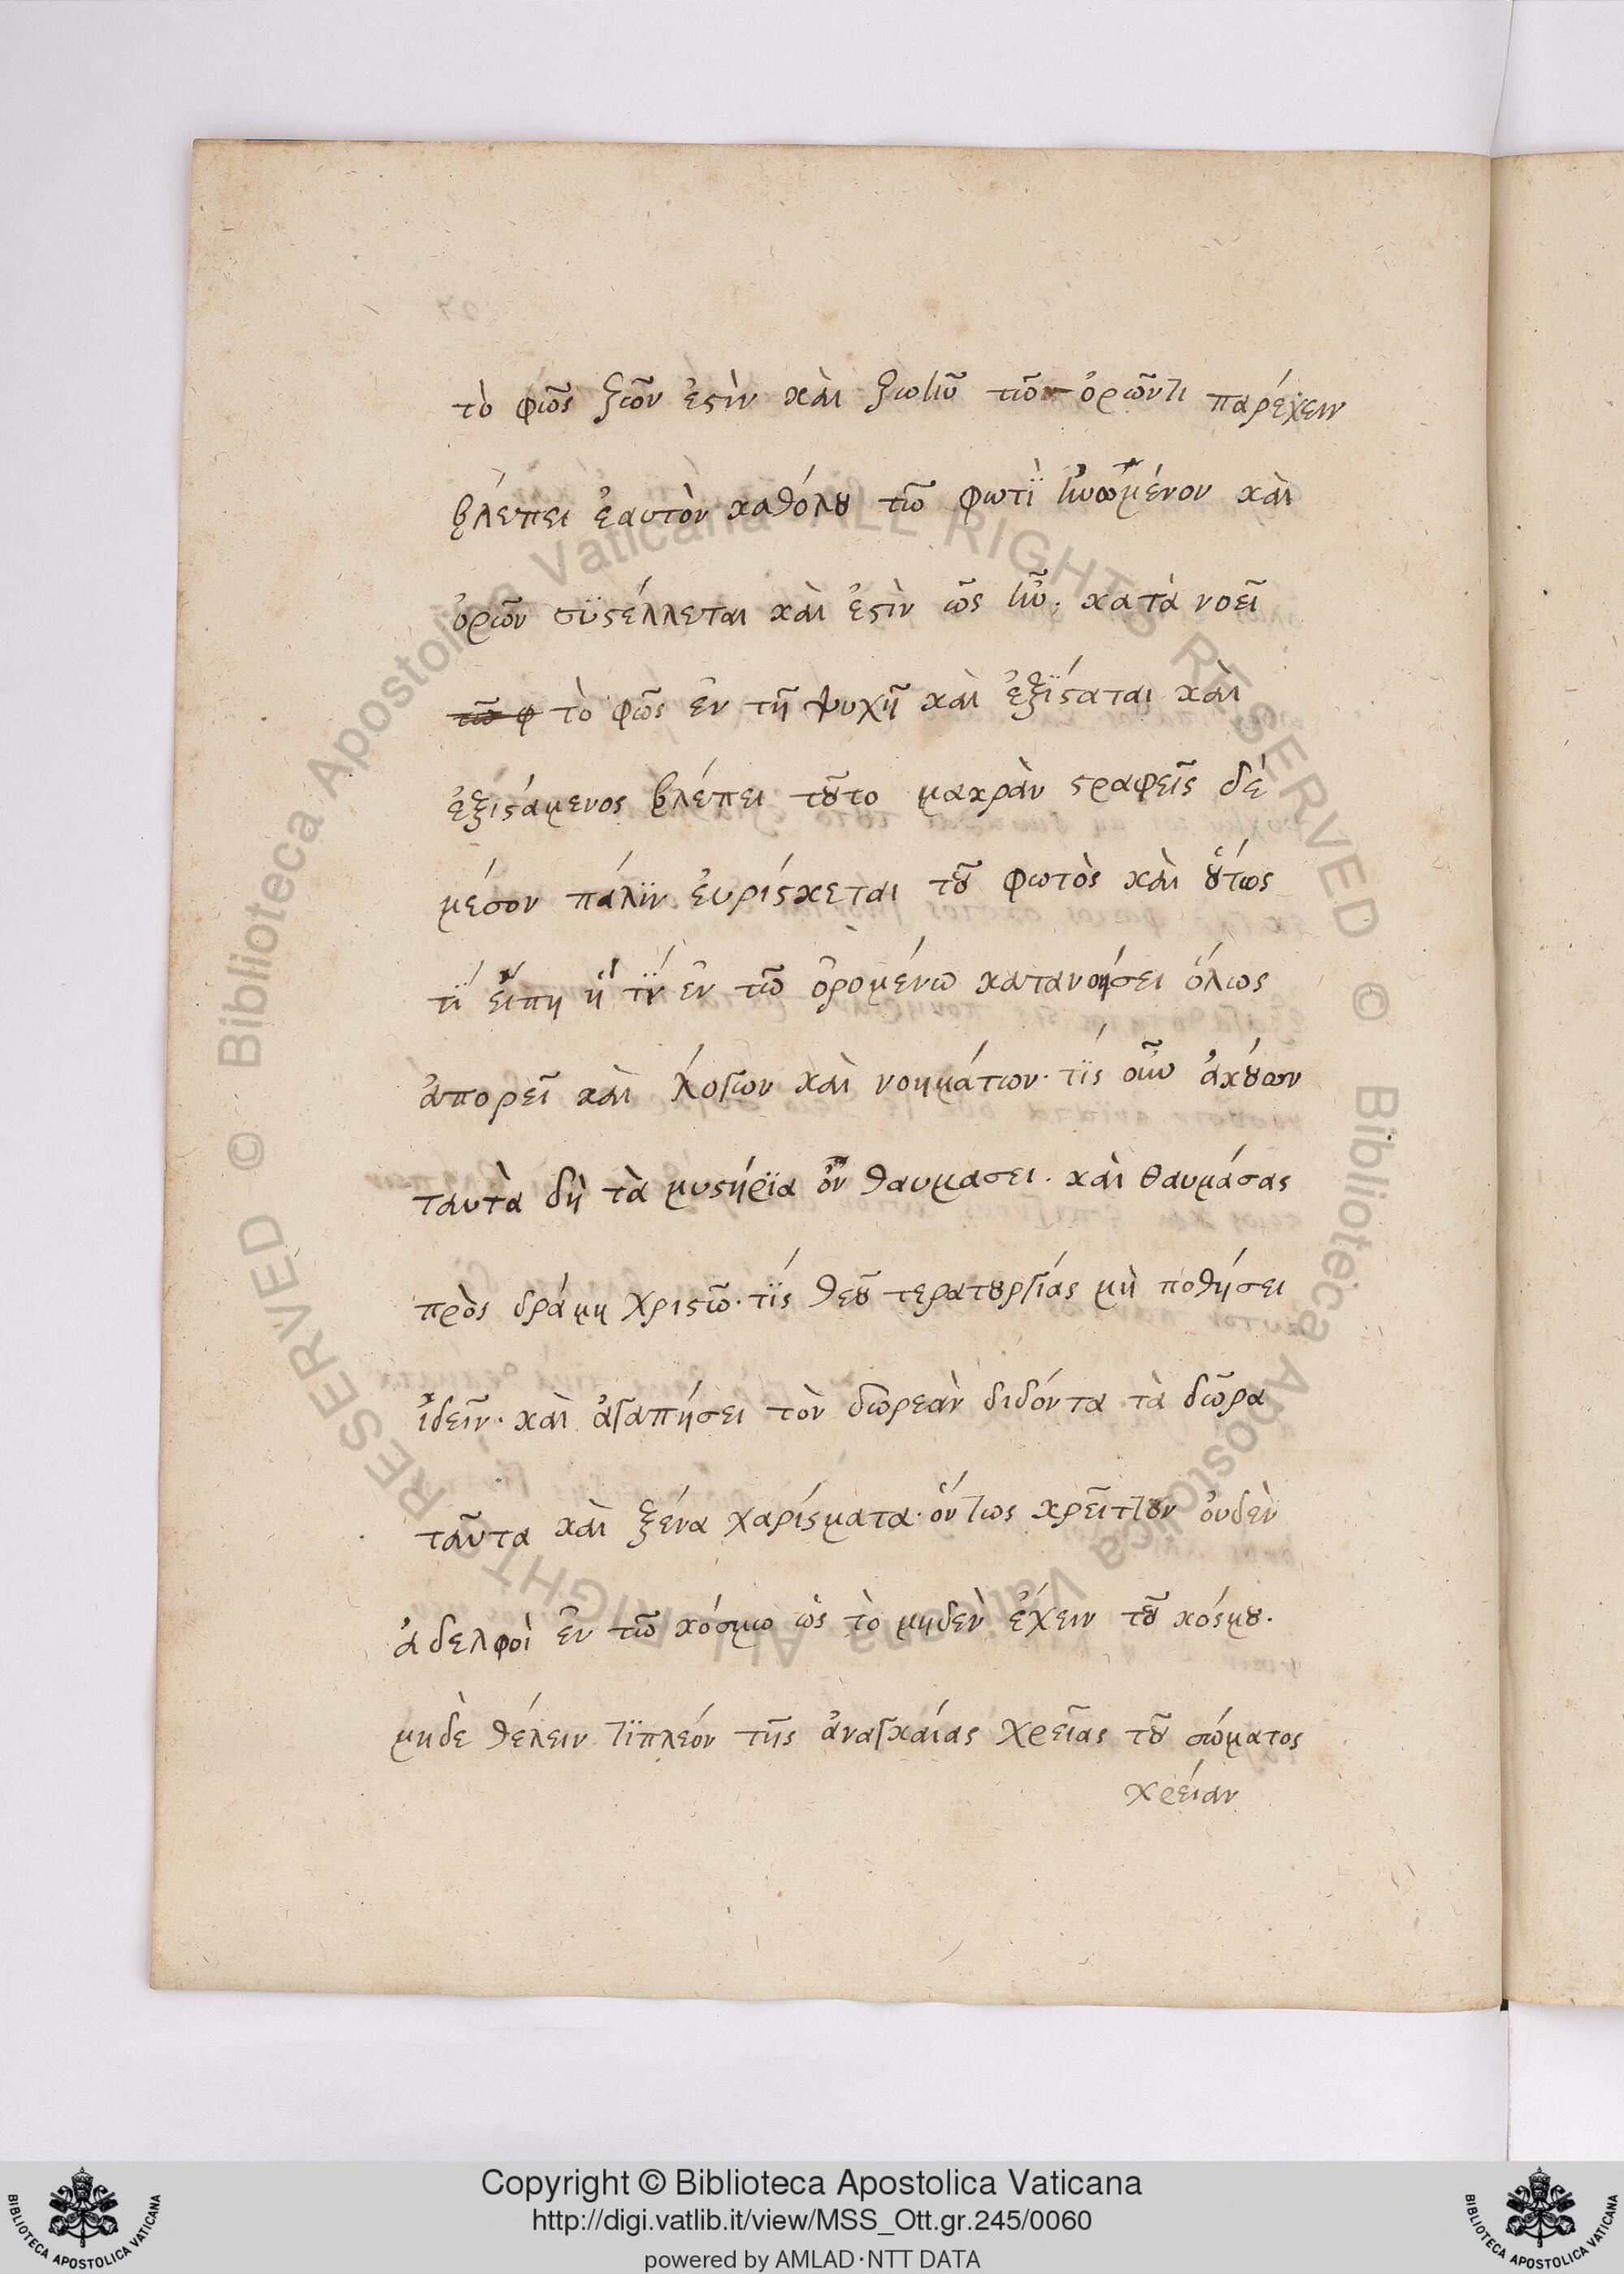 τὸ φῶς ζῶν ἐστὶν καὶ ζωὴν τῶ ὁρῶντι παρέχειν
βλέπει ἑαυτὸν καθόλου τῶ φωτῒ ἡνωμένον καὶ
ὁρῶν συστέλλεται καὶ ἐστὶν ὡς ἦν. κατὰ νοεῖ
τῶ φ τὸ φῶς ἐν τῆ ψυχῆ καὶ ἐξΐσταται καὶ
ἐξιστάμενος βλέπει τοῦτο μακρὰν στραφεῖς δέ
μέσον πάλϊν ἑυρίσκεται τοῦ φωτὸς καὶ οὕτως
τΐ εἴπη ἢ τΐ ἐν τῶ ὁρομένω κατανοήσει ὅλως
ἀπορεῖ καὶ λόγων καὶ νοημάτων. τΐς οὖν ἀκούων
ταυτὰ δὴ τὰ μυστήρϊα οὐ θαυμασει. καὶ θαυμάσας
πρὸς δράμη χριστῶ. τΐς θεοῦ τερατουργίας μὴ ποθήσει
ἰδεῖν. καὶ ἀγαπήσει τὸν δωρεὰν διδόντα τὰ δῶρα
ταῦτα καὶ ξένα χαρίσματα. ὄντως κρεῖττον ὀυδὲν
ἀδελφοὶ ἐν τῶ κόσμω ὡς τὸ μηδὲν ἔχειν τοῦ κόσμου.
μηδὲ θέλειν τϊπλεόν τῆς ἀναγκαίας χρεῖας τοῦ σώματος
χρείαν
Copyright © Biblioteca Apostolica Vaticana
http://digi.vatlib.it/view/MSS_Ott.gr.245/0060
powered by AMLAD·NTT DATA